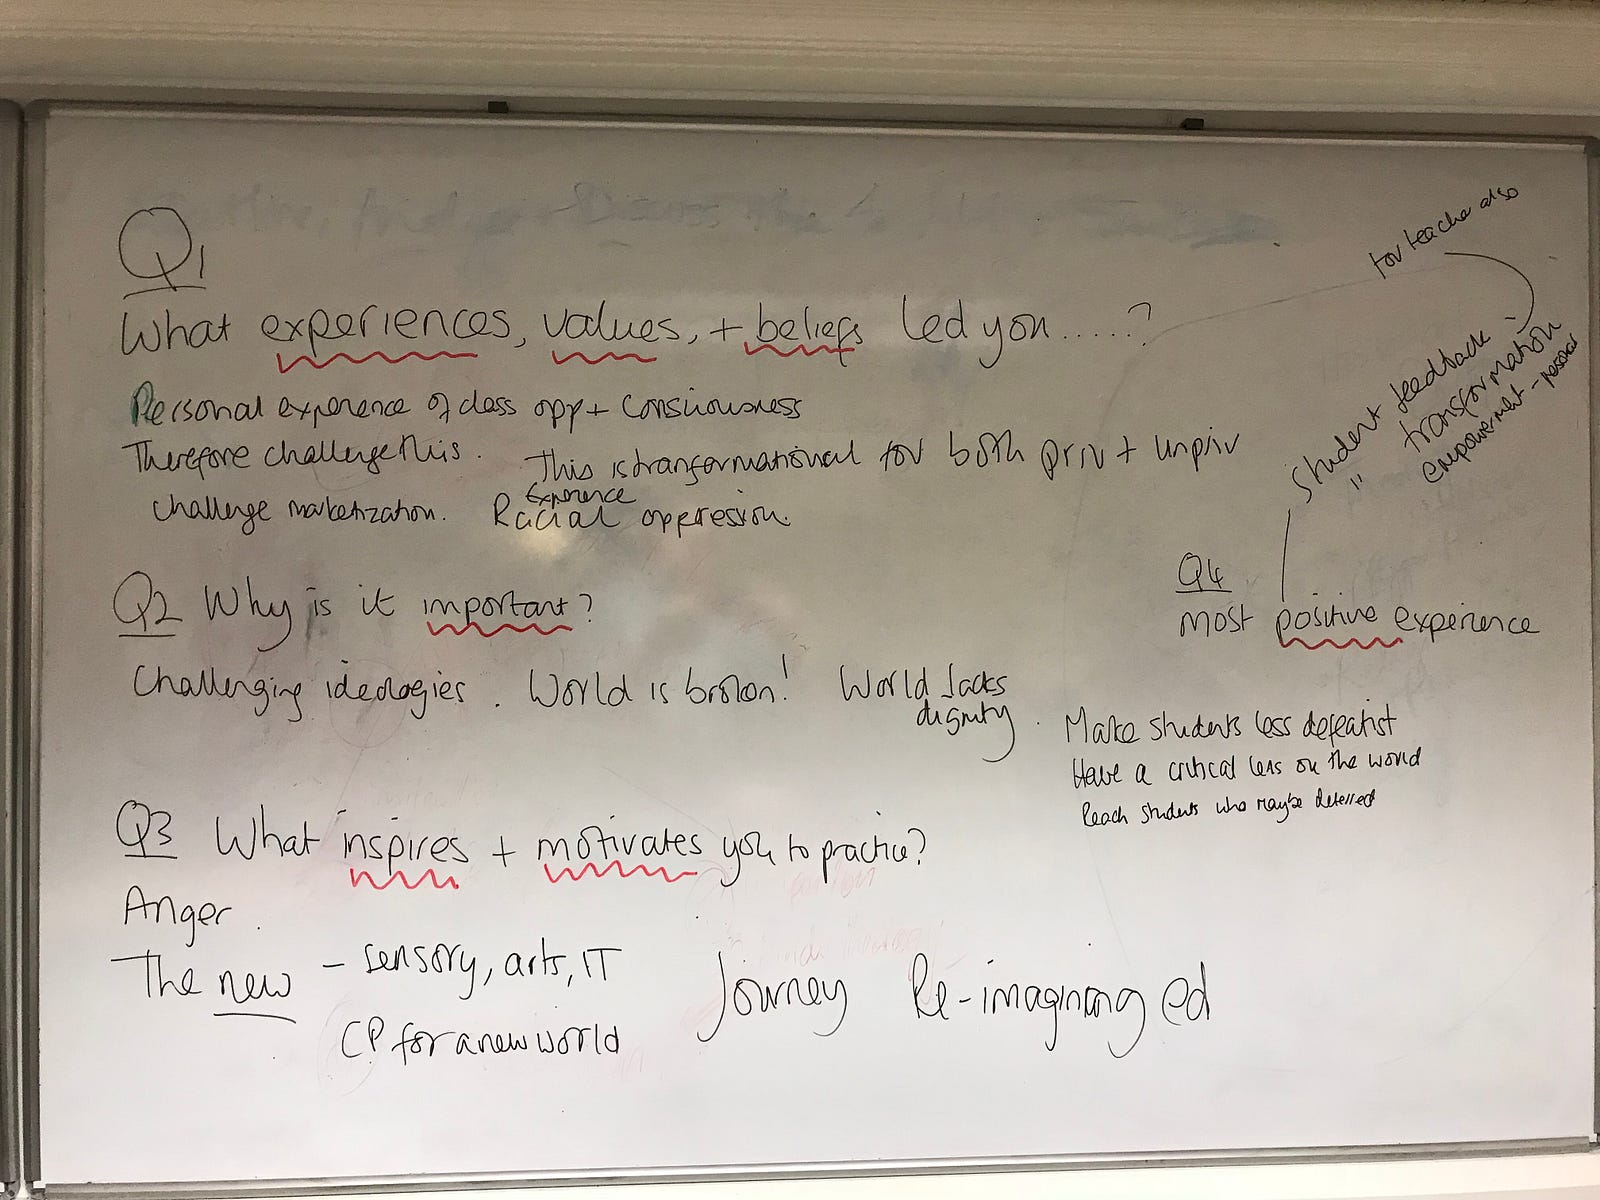 Q1
What experiences, values, + beliefs led you.....?
Personal experience of class opp + Consciousness
Therefore challenge this. This is transformational for both priv + unpriv
Challenge marketization. Racial oppression.
Experience
Q2 Why is it important?
Challenging ideologies. World is broken! World lacks
dignity.
Make students less defeatist
Have a critical lens on the world
Reach students who maybe deterred
Q3 What inspires + motivates you to practice?
Anger.
The new - sensory, arts, IT
CP for a new world
Journey Re-imagining ed
Q4
most positive experience
Student feedback -
" transformation
empowerment - personal
for teacher also